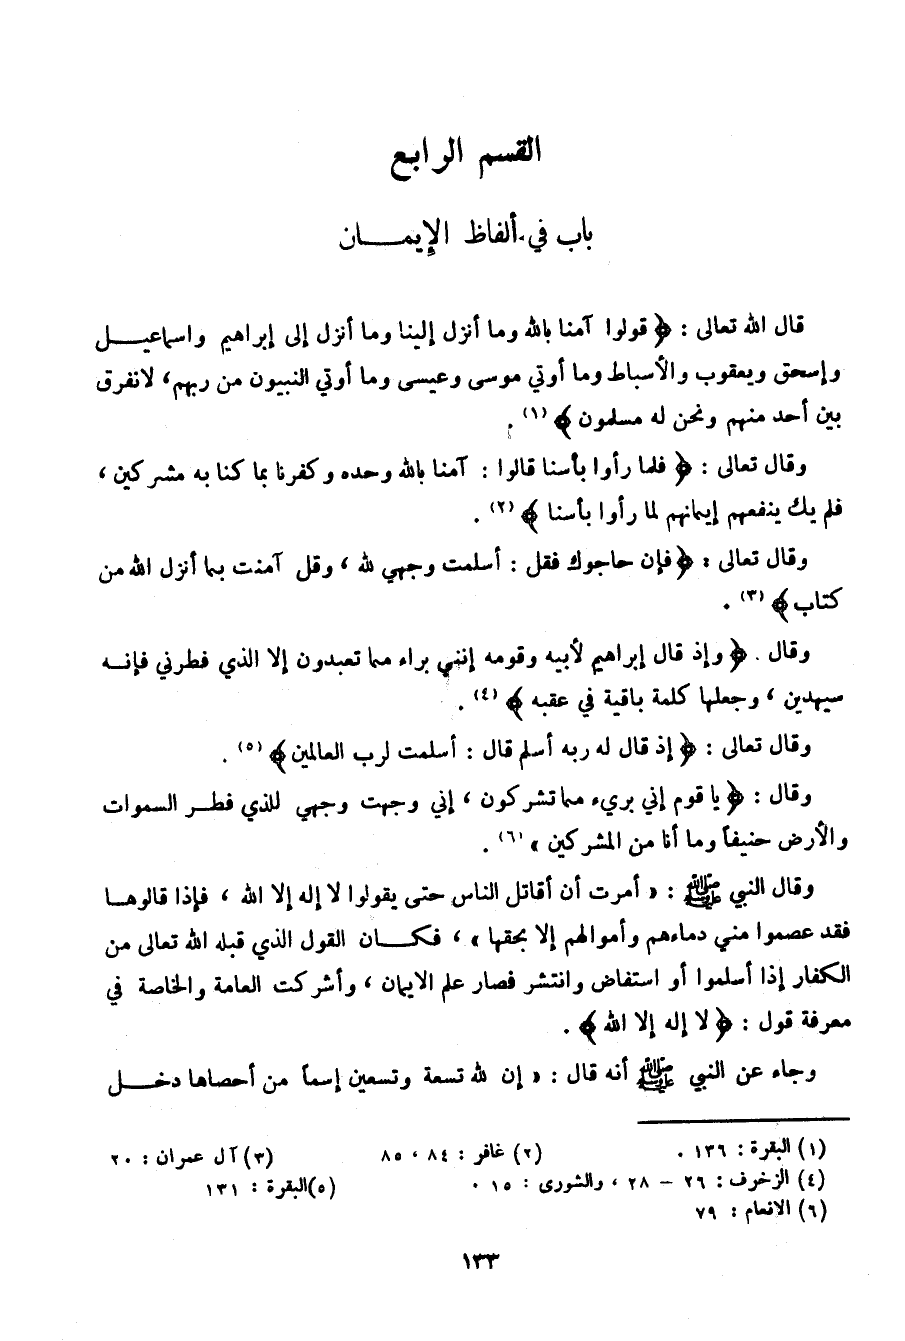 القسم الرابع
باب في ألفاظ الإيمـــان
قال الله تعالى : ﴿ قولوا آمنا بالله وما أنزل إلينا وما أنزل إلى إبراهيم واسماعيـــل
وإسحق ويعقوب والأسباط وما أوتي موسى وعيسى وما أوتي النبيون من ربهم، لانفرق
بين أحد منهم ونحن له مسلمون ﴾ (١) .
وقال تعالى : ﴿ فلما رأوا بأسنا قالوا : آمنا بالله وحده وكفرنا بما كنا به مشركين ،
فلم يك ينفعهم إيمانهم لما رأوا بأسنا ﴾ (٢) .
وقال تعالى : ﴿ فإن حاجوك فقل : أسلمت وجهي لله ، وقل آمنت بما أنزل الله من
كتاب ﴾ (٣) .
وقال . ﴿ وإذ قال إبراهيم لأبيه وقومه إنني براء مما تعبدون إلا الذي فطرني فإنـــه
سيهدين ، وجعلها كلمة باقية في عقبه ﴾ (٤) .
وقال تعالى : ﴿ إذ قال له ربه أسلم قال : أسلمت لرب العالمين ﴾ (٥) .
وقال : ﴿ يا قوم إني بريء مما تشركون ، إني وجهت وجهي للذي فطـر السموات
والأرض حنيفاً وما أنا من المشركين » (٦) .
وقال النبي ﷺ : « أمرت أن أقاتل الناس حتى يقولوا لا إله إلا الله ، فإذا قالوهـا
فقد عصموا مني دماءهم وأموالهم إلا بحقها » ، فكـــان القول الذي قبله الله تعالى من
الكفار إذا أسلموا أو استفاض وانتشر فصار علم الايمان ، وأشركت العامة والخاصة في
معرفة قول : ﴿ لا إله إلا الله ﴾ .
وجاء عن النبي ﷺ أنه قال : « إن لله تسعة وتسعين إسماً من أحصاها دخـــل
(١) البقرة : ١٣٦ . (٢) غافر : ٨٤ ، ٨٥ (٣) آل عمران : ٢٠
(٤) الزخرف : ٢٦ – ٢٨ ، والشورى : ١٥ . (٥)البقرة : ١٣١
(٦) الانعام : ٧٩
١٣٣